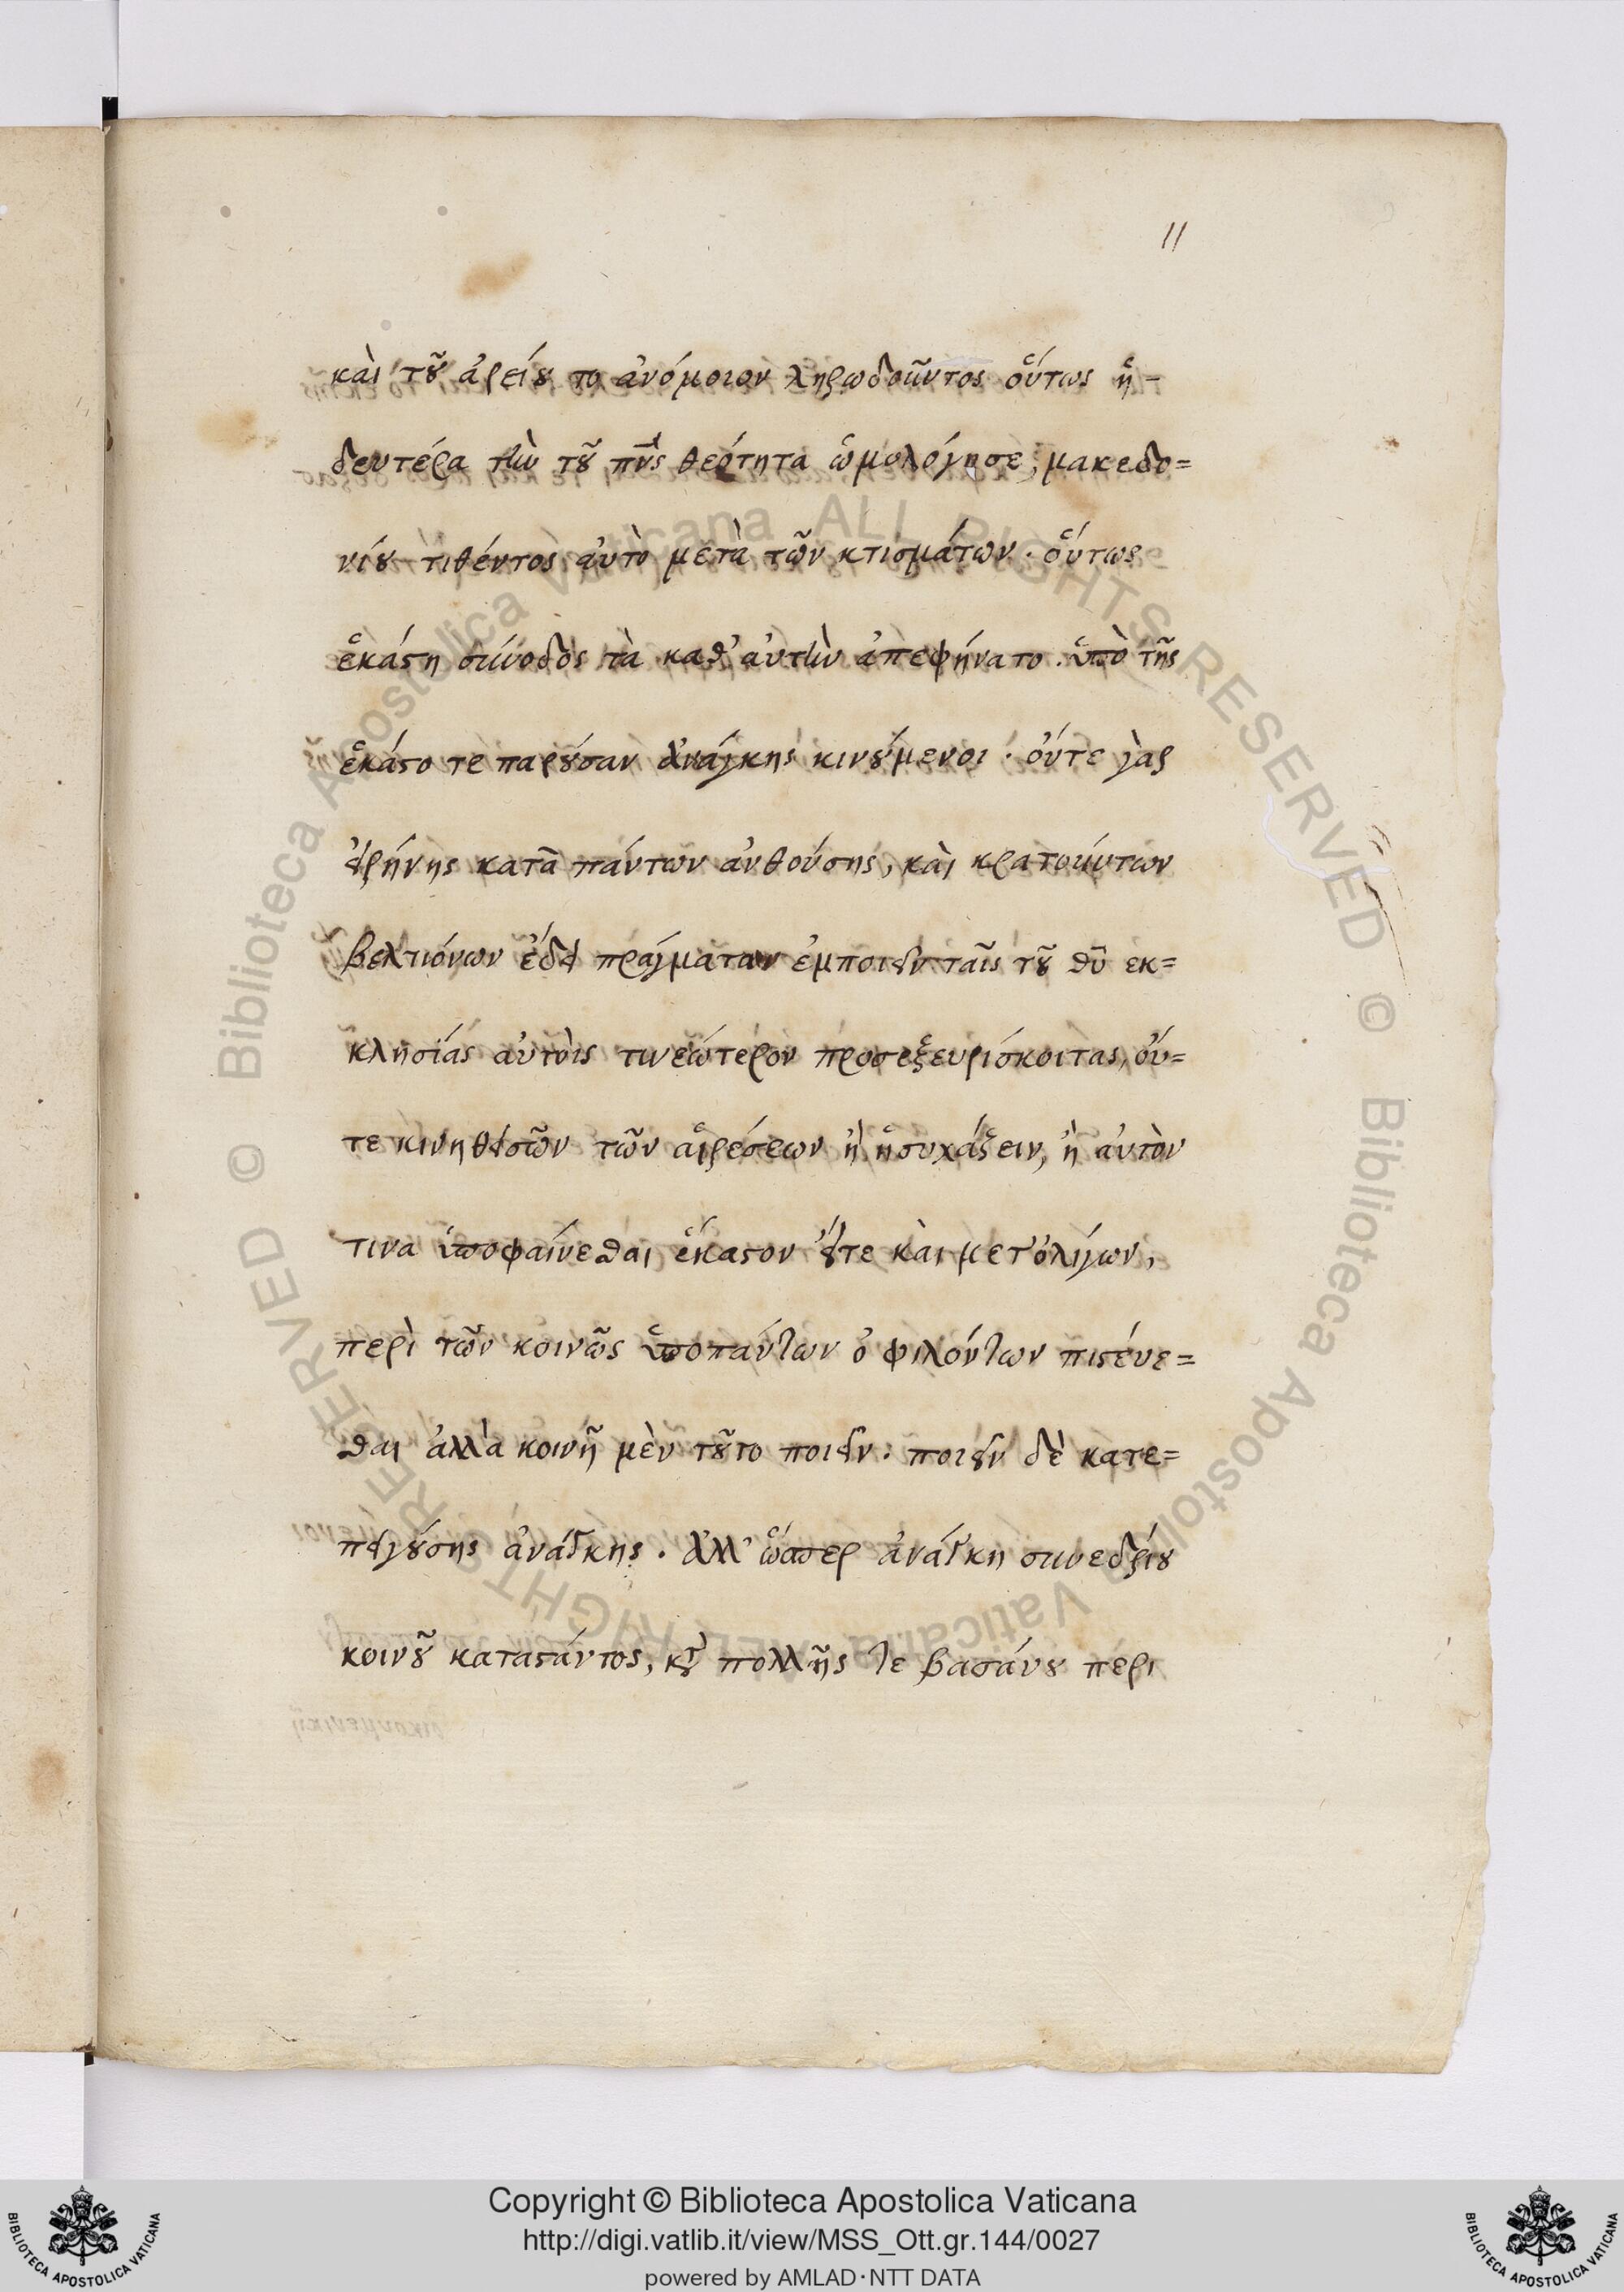 11
καὶ τοῦ ἀρείου το ἀνόμοιον ληρωδοῦντος οὕτως ἡ-
δευτέρα τὴν τοῦ πνς θεότητα ὡμολόγησε, μακεδο=
νίου τιθέντος αὐτὸ μετὰ τῶν κτισμάτων. οὕτως
ἑκάστη σύνοδος τὰ καθ' αὑτὴν ἀπεφήνατο. ὑπὸ τῆς
ἑκάστο τε παρούσαν ἀνάγκης κινούμενοι. οὔτε γὰρ
εἰρήνης κατὰ πάντων ἀνθούσης, καὶ κρατούντων
βελτιόνων ἔδει πράγματων ἐμποιεῖν ταῖς τοῦ θῦ ἐκ=
κλησίας αὐτοῖς τι νεώτερον προσεξευρίσκοιτας, οὔ=
τε κινηθεισῶν τῶν αἱρέσεων ἢ ἡσυχάζειν, ἢ αὐτὸν
τινα ὑποφαίνεσθαι ἕκαστον οὔτε καὶ μετ' ὀλίγων,
περὶ τῶν κοινῶς ὑποπάντων ὀφιλόντων πιστέυε=
σθαι ἀλλὰ κοινῆ μὲν τοῦτο ποιεῖν. ποιεῖν δὲ κατε=
πειγούσης ἀνάγκης. ἀλλ' ὥσπερ ἀνάγκη συνεδρίου
κοινοῦ καταστάντος, καὶ πολλῆς τε βασάνου περι
Copyright © Biblioteca Apostolica Vaticana
http://digi.vatlib.it/view/MSS_Ott.gr.144/0027
powered by AMLAD·NTT DATA
BIBLIOTECA APOSTOLICA VATICANA
BIBLIOTECA APOSTOLICA VATICANA